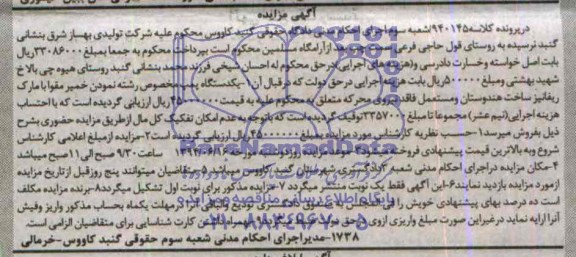 آگهی مزایده
درپرونده کلاسه ۹۴۰۱۴۵/شعبه سوم اجرای احکام مدنی دادگاه حقوقی گنبد کاووس محکوم علیه شرکت تولیدی بهساز شرق بنشانی
گنبد نرسیده به روستای قول حاجی فرعی بعد از آرامگاه مسلمین محکوم است بپرداخت محکوم به جمعا بمبلغ ۳۳۰۸۶۰۰۰ریال
بابت اصل خواسته وخسارت دادرسی و(هزینه های اجرایی)درحق محکوم له احسان سیخی فرزند محمد بنشانی گنبد روستای هیوه چی بالا خ
شهید بهشتی ومبلغ ریال بابت هزینه اجرایی درحق دولت که درقبال آن ۱-یکدستگاه پمپ مخصوص رشته نمودن خمیر مقوا با مارک
ریفانیز ساخت هندوستان ومستعمل فاقد نیروی محرکه متعلق به محکوم علیه به قیمت ریال ارزیابی گردیده است که با احتساب
هزینه اجرایی(نیم عشر) مجموعا تا مبلغ توقیف گردیده است که باتوجه به عدم امکان تفکیک کل مال ازطریق مزایده حضوری بشرح
ذیل بفروش میرسد۱-حسب نظریه کارشناس مورد مزایده بمبلغ ریال ارزیابی گردیده است۲-مزایده از مبلغ اعلامی کارشناس
شروع وبه بالاترین قیمت پیشنهادی فروخته ساعت ۹/۳۰ صبح الی ۱۱ صبح میباشد
۴-مکان مزایده دراجرای احکام مدنی شعبه دادگستری شهرستان گنبد کاووس میباشد۵-متقاضیان میتوانند پنج روزقبل ازتاریخ مزایده
ازمورد مزایده بازدید نمایند۶-این آگهی فقط یک نوبت منتشر میگردد۷-مزایده مذکور برای نوبت اول تشکیل میگردد۸-برنده مزایده مکلف
است ده درصد بهای پیشنهادی خویش را فی المجلس به دادگستری تودیع مهلت یکماه بحساب مذکور واریز وفیش
آنرا ارایه نماید درغیراین صورت مبلغ واریزی ازوی همراه داشتن کارت شناسایی برای متقاضیان الزامی است.
۱۷۳۸-مدیراجرای احکام مدنی شعبه سوم حقوقی گنبد کاووس-خرمالی
ParsNamadData